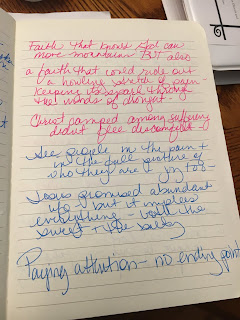 Faith that knows God can
move mountains BUT also
a faith that could ride out
a howling stretch of pain -
keeping its spark through
the winds of drought.
Christ camped among suffering
didn't flee discomfort
See people in the pain +
in the full picture of
who they are - joy too -
Jesus promised abundant
life - but it implies
everything - both the
sweet + the salty
Paying attention - no ending point